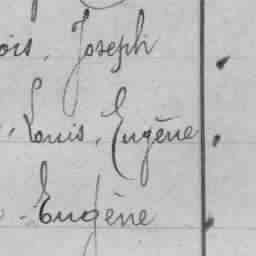 ois, Joseph
, Louis, Eugène
. Eugène